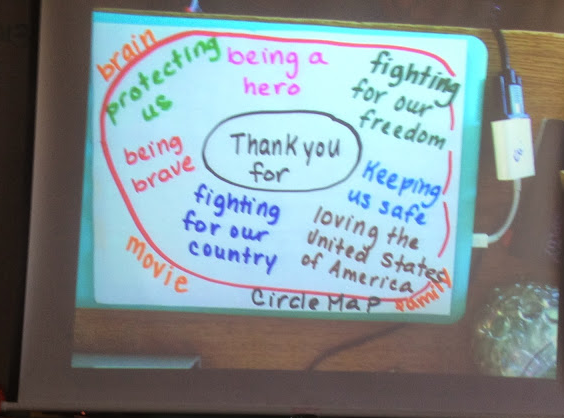 brain
protecting
us
being a
hero
fighting
for our
freedom
being
brave
Thank you
for
Keeping
us safe
fighting
for our
country
loving the
United States
of America
movie
family
Circle Map